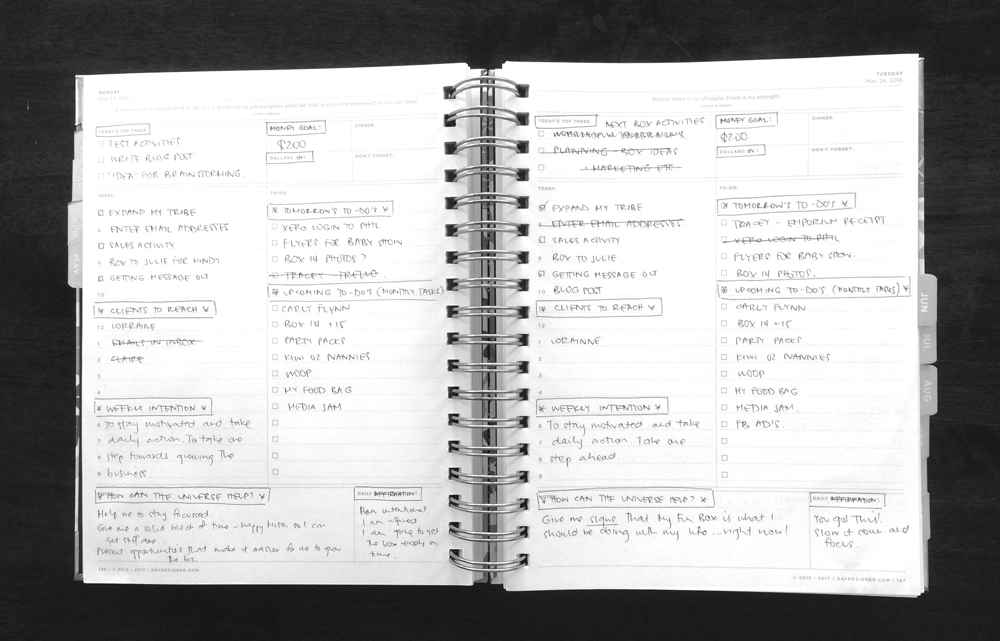 MONDAY
May 23, 2016
TODAY'S TOP THREE
TEST ACTIVITIES
WRITE BLOG POST
"IDEA" FOR BRAINSTORMING.
MONEY GOAL:
$200
DOLLARS IN:
DINNER:
DON'T FORGET:
TODAY:
EXPAND MY TRIBE
8 ENTER EMAIL ADDRESSES
SALES ACTIVITY
9 BOX TO JULIE FOR
GETTING MESSAGE OUT
10
* CLIENTS TO REACH *
12 LORRAINE
1 EMAILS IN INBOX
2 CLAIRE
3
4
* WEEKLY INTENTION *
6 To stay motivated and take
7 daily action. To take one
8 step towards growing the
9 business.
TO-DO:
* TOMORROW'S TO-DO'S *
XERO LOGIN TO PHIL
FLYERS FOR BABY SHOW
BOX 14 PHOTOS?
TRACEY - TRELLO.
* UPCOMING TO-DO'S (MONTHLY TASKS)
CARLY FLYNN
BOX 14 + 15
PARTY PACKS
KIWI OZ NANNIES
WOOP
MY FOOD BAG
MEDIA JAM
* HOW CAN THE UNIVERSE HELP? *
Help me to stay focussed.
Give me a solid block of time - happy so I can
get stuff done.
Present opportunities that make it easier for me to grow
the biz.
DAILY AFFIRMATION:
I am
I am going to get
the box ready on
time.
146 | © 2012 - 2017 | DAYDESIGNER.COM
TUESDAY
May 24, 2016
Where there is no struggle, there is no strength.
TODAY'S TOP THREE: NEXT BOX ACTIVITIES.
PLANNING - BOX IDEAS
- MARKETING ETC
MONEY GOAL:
$200
DOLLARS IN:
DINNER:
DON'T FORGET:
TODAY:
EXPAND MY TRIBE
8 ENTER EMAIL ADDRESSES
SALES ACTIVITY
9 BOX TO JULIE
GETTING MESSAGE OUT
10 BLOG POST
* CLIENTS TO REACH *
12
1 LORAINNE
2
3
4
* WEEKLY INTENTION *
6 To stay motivated and take
7 daily action. Take one
8 step ahead.
9
TO-DO:
* TOMORROW'S TO-DO'S *
TRACEY - EMPORIUM RECEIPT
XERO LOGIN TO PHIL
FLYERS FOR BABY SHOW.
BOX 14 PHOTOS.
* UPCOMING TO-DO'S (MONTHLY TASKS) *
CARLY FLYNN
BOX 14 + 15
PARTY PACKS
KIWI OZ NANNIES
WOOP
MY FOOD BAG
MEDIA JAM.
FB AD'S.
* HOW CAN THE UNIVERSE HELP? *
Give me signs that My Fun Box is what I
should be doing with my life...right now!
DAILY AFFIRMATION:
You got this!
Slow it down and
focus.
© 2012 - 2017 | DAYDESIGNER.COM | 147
MAY
JUN
JUL
AUG